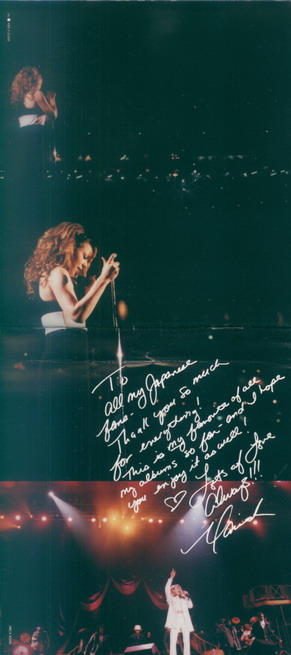 To
all my Japanese
fans-
Thank you so much
for everything!
This is my favorite of all
my albums so far- and I hope
you enjoy it as well!
♡ Lots of Love
Always!!!
Mariah